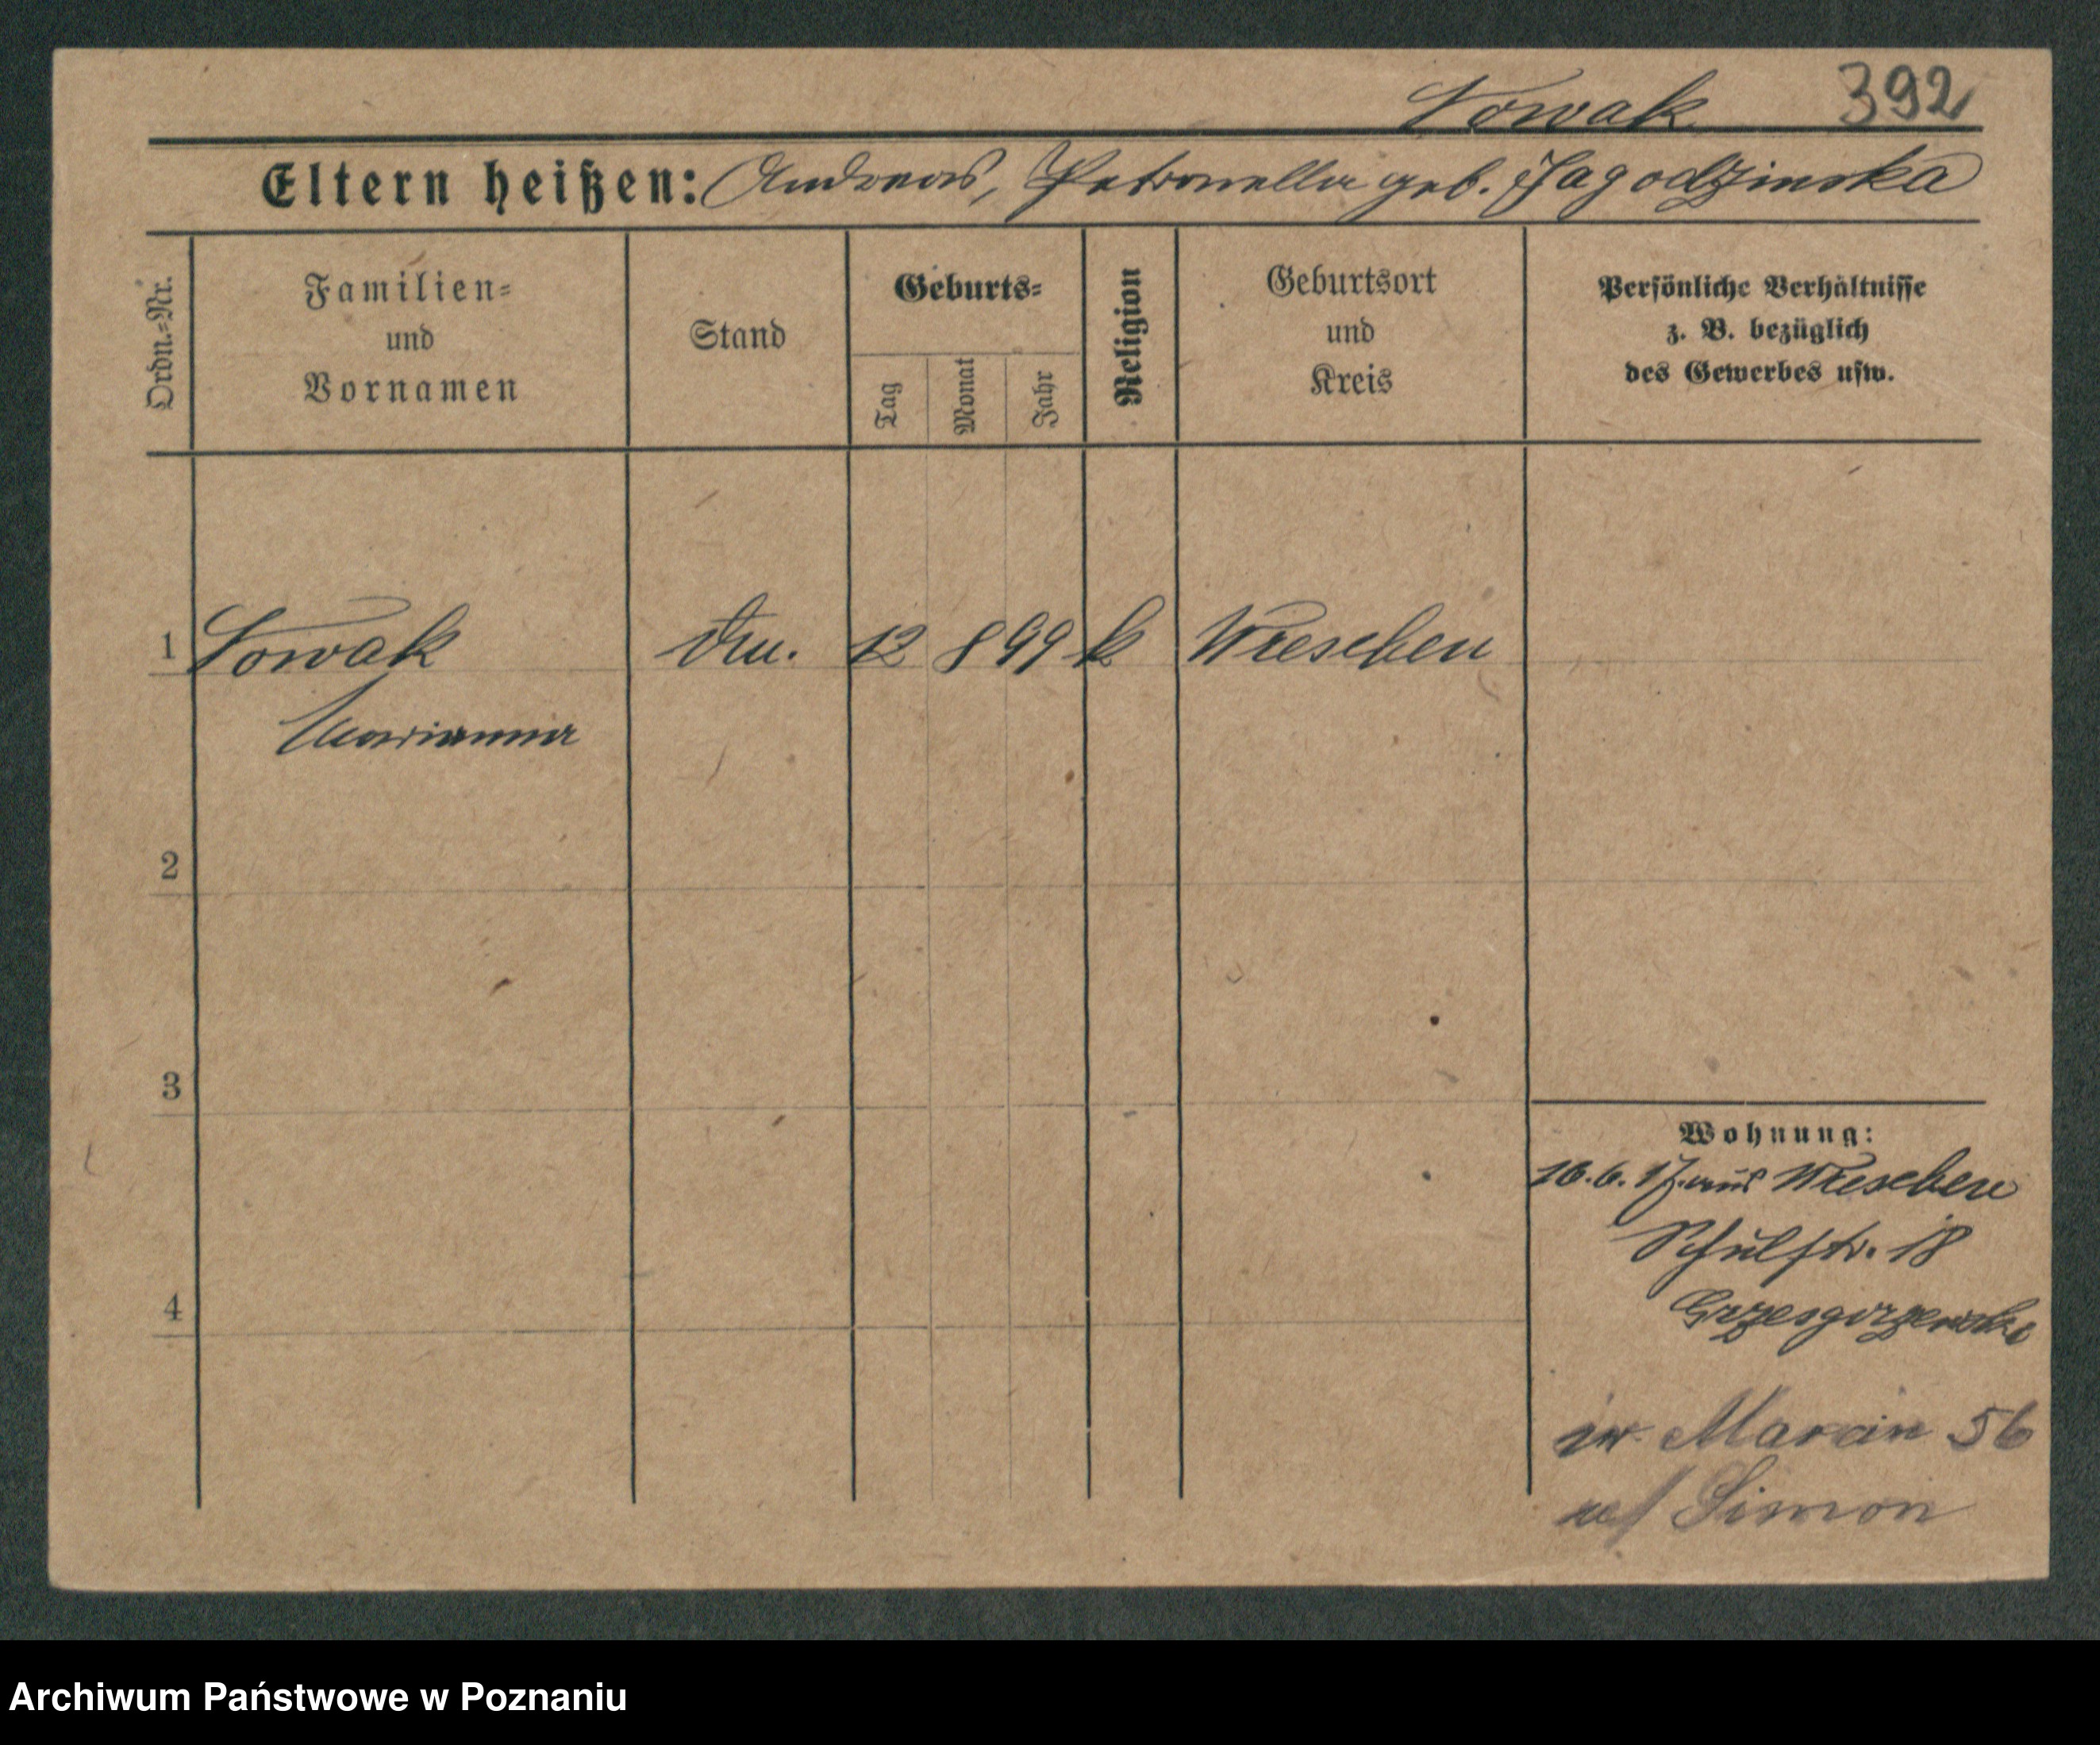 Nowak 392
Eltern heißen: Andreas, Petronella geb. Jagodzinska
Ordn.=Nr.
Familien=
und
Vornamen
Stand
Geburts=
Tag
Monat
Jahr
Religion
Geburtsort
und
Kreis
Persönliche Verhältnisse
z. B. bezüglich
des Gewerbes usw.
1 Nowak 12 8 99 k Wreschen
Marianna
2
3
4
Wohnung:
16.6.17. aus Wreschen
Schulstr. 18
św. Marcin 56
Simon
Archiwum Państwowe w Poznaniu